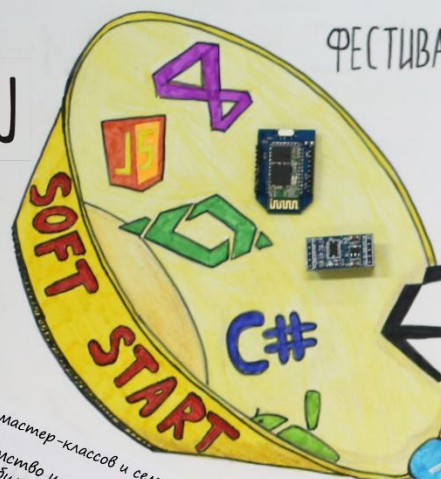 ФЕСТИВА
JS
SOFT START
C#
мастер-классов и